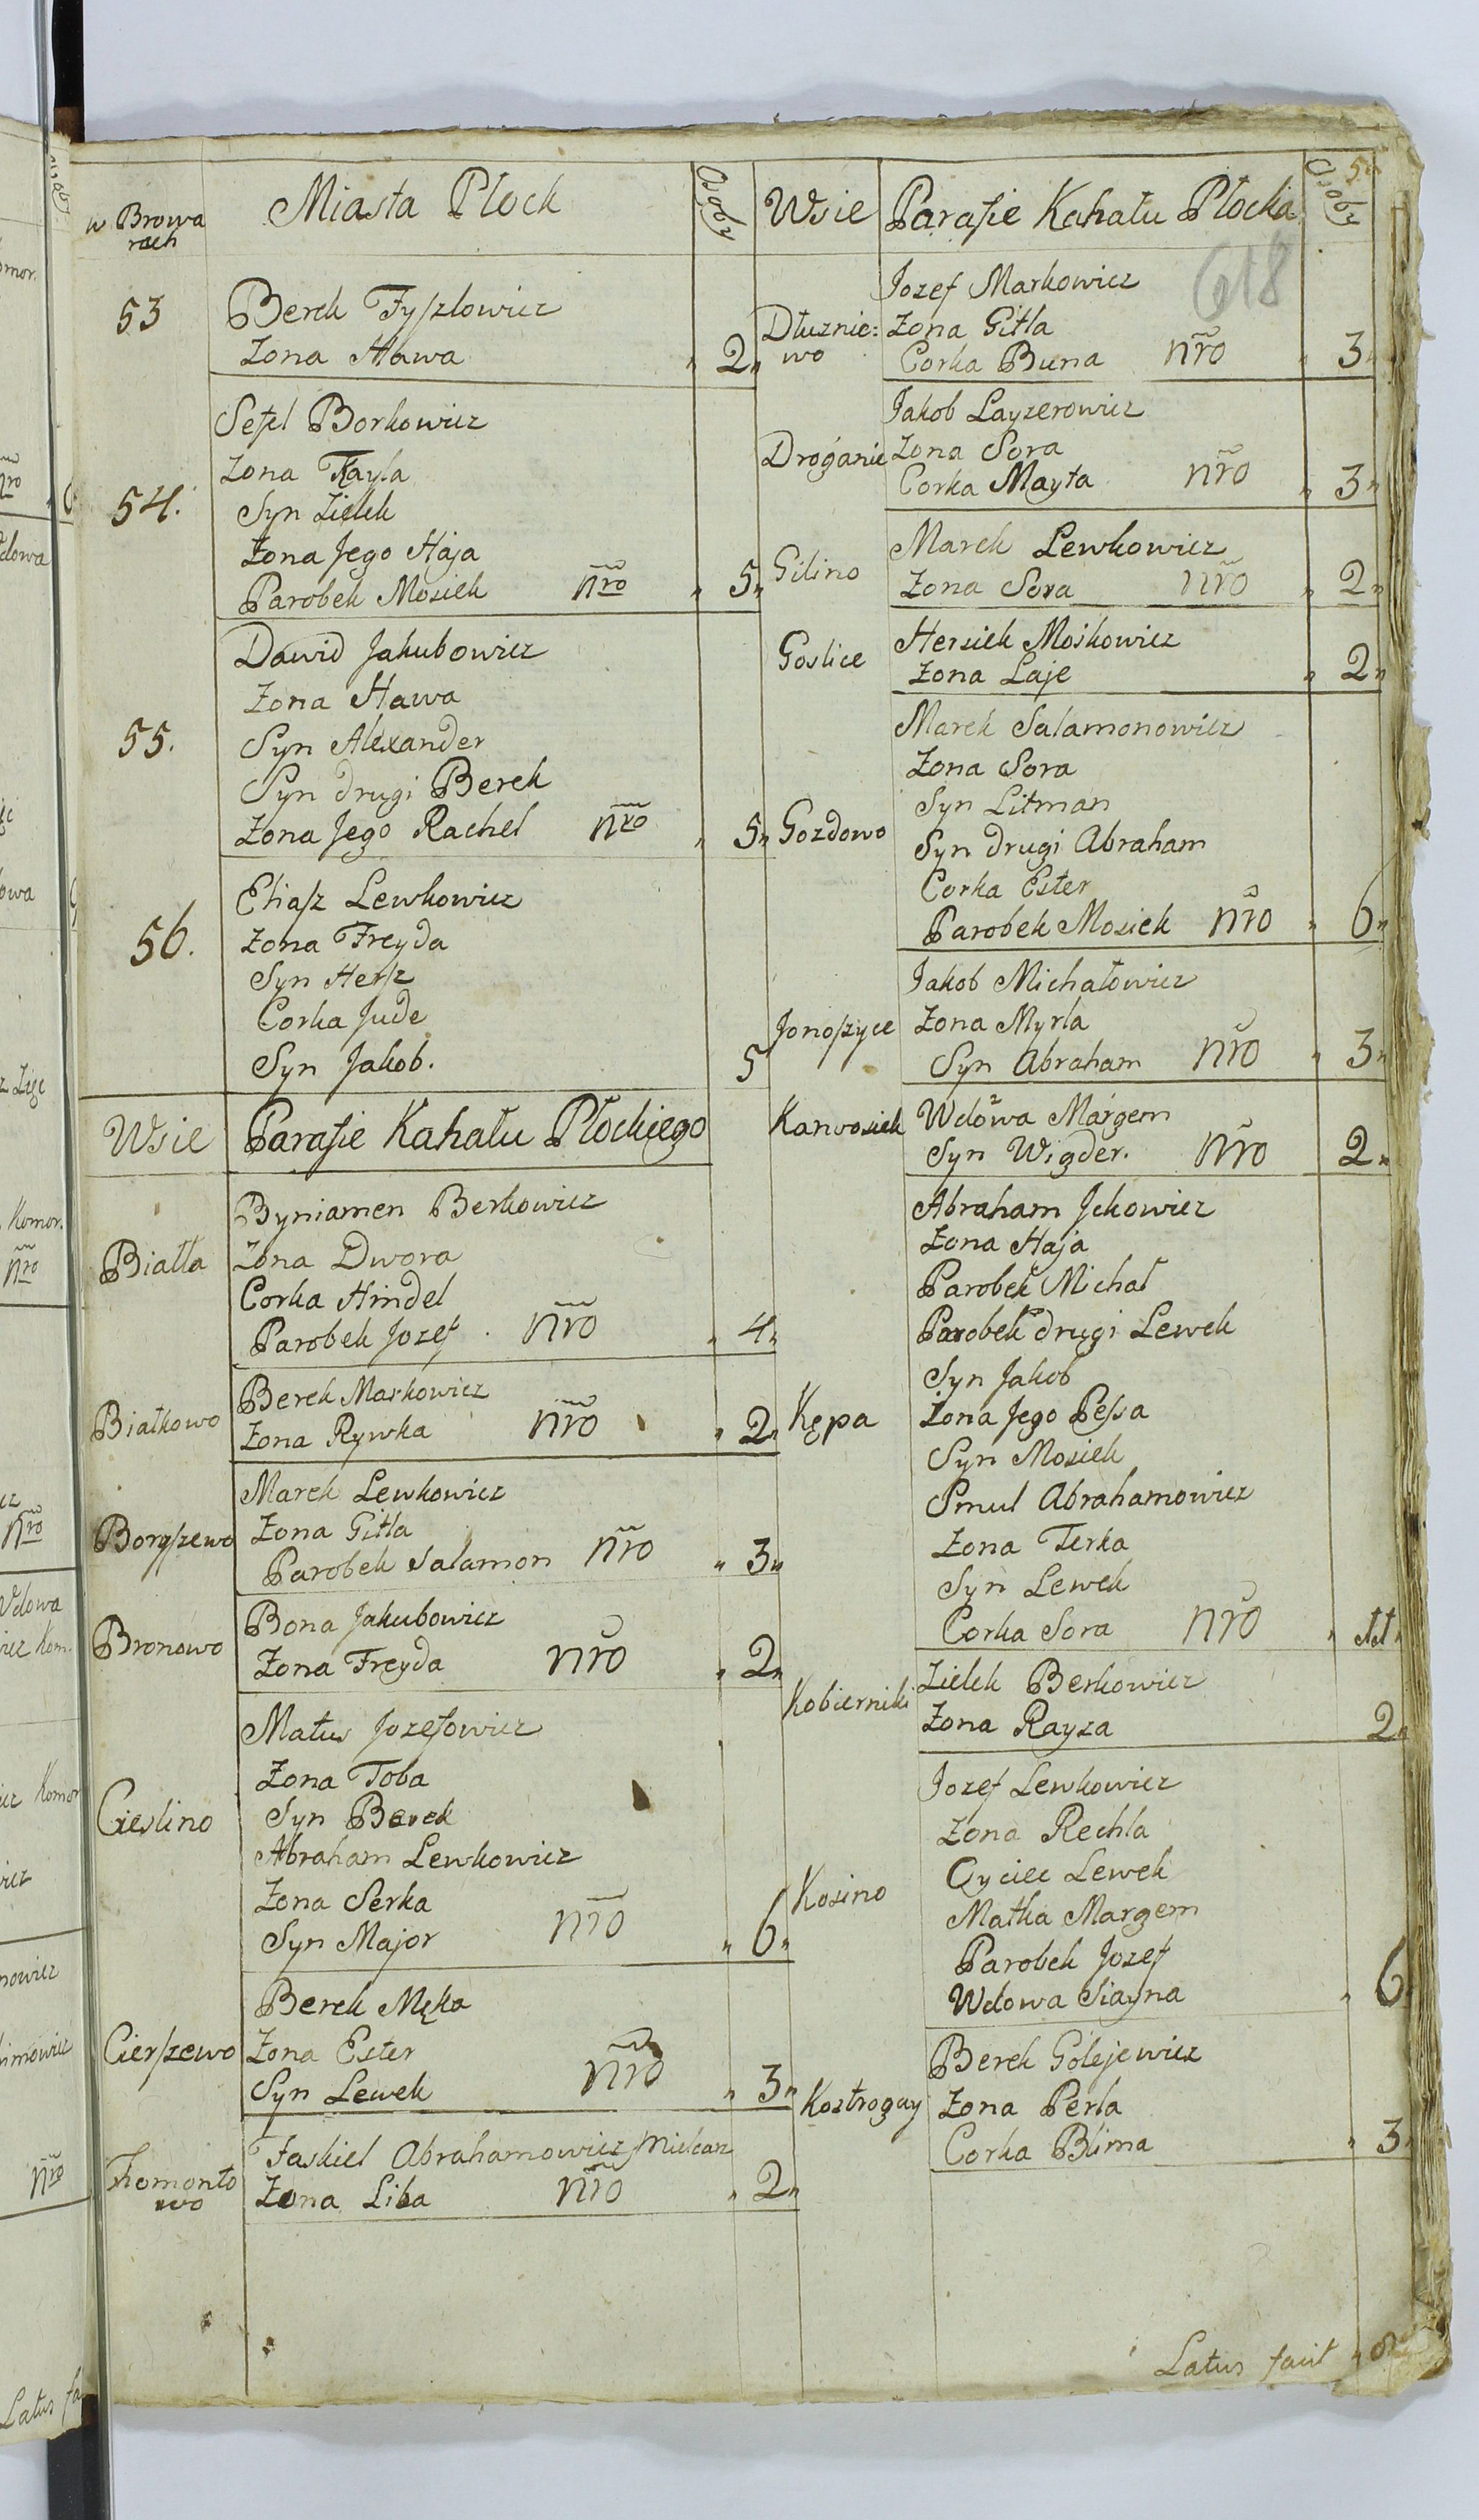 w Browa
rach
Miasta Płock
Osoby
53
Berek Fyszlowicz
Zona Hawa
" 2 "
54.
Sefzl Borkowicz
Zona Fayla
Syn Zielek
Zona Jego Haja
Parobek Mosiek nro " 5 "
55.
Dawid Jakubowicz
Zona Hawa
Syn Alexander
Syn drugi Berek
Zona Jego Rachel nro " 5 "
56.
Eliasz Lewkowicz
Zona Freyda
Syn Hersz
Corka Jude
Syn Jakob. 5
Wsie
Parafie Kahału Płockiego
Białła
Byniamen Berkowicz
Zona Dwora
Corka Hindel
Parobek Jozef nro " 4 "
Białkowo
Berek Markowicz
Zona Rywka nro " 2 "
Borszewo
Marek Lewkowicz
Zona Gitla
Parobek Salamon nro " 3 "
Bronowo
Bona Jakubowicz
Zona Freyda nro " 2 "
Cieslino
Matus Jozefowicz
Zona Toba
Syn Berek
Abraham Lewkowicz
Zona Serka
Syn Major nro " 6 "
Cierszewo
Berek Męka
Zona Ester
Syn Lewek nro " 3 "
wo
Faskiel Abrahamowicz Mielcarz
Zona Liba nro " 2 "
Wsie
Parafie Kahału Płocka
Osoby
618
Dłuznie=
wo
Jozef Markowicz
Zona Gitla
Corka Buna nro " 3 "
Droganie
Jakob Layzerowicz
Zona Sora
Corka Mayta nro " 3 "
Gilino
Marek Lewkowicz
Zona Sora nro " 2 "
Goslice
Hersiek Moskowicz
Zona Laje " 2 "
Gozdowo
Marek Salamonowicz
Zona Sora
Syn Litman
Syn drugi Abraham
Corka Ester
Parobek Mosiek nro " 6 "
Jonoszyce
Jakob Michałowicz
Zona Myrla
Syn Abraham nro " 3 "
Karwosiek
Wdowa Margem
Syn Wigder. nro 2 "
Kępa
Abraham Jckowicz
Zona Haja
Parobek Michał
Parobek drugi Lewek
Syn Jakob
Zona Jego Pessa
Syn Mosiek
Smul Abrahamowicz
Zona Terka
Syn Lewek
Corka Sora nro " 11 "
Kobierniki
Zielek Berkowicz
Zona Rayza 2 "
Kosino
Jozef Lewkowicz
Zona Rechla
Oyciec Lewek
Matka Margem
Parobek Jozef
Wdowa Siayna " 6
Kostrogay
Berek Golejewicz
Zona Perla
Corka Blima " 3
Latus facit "